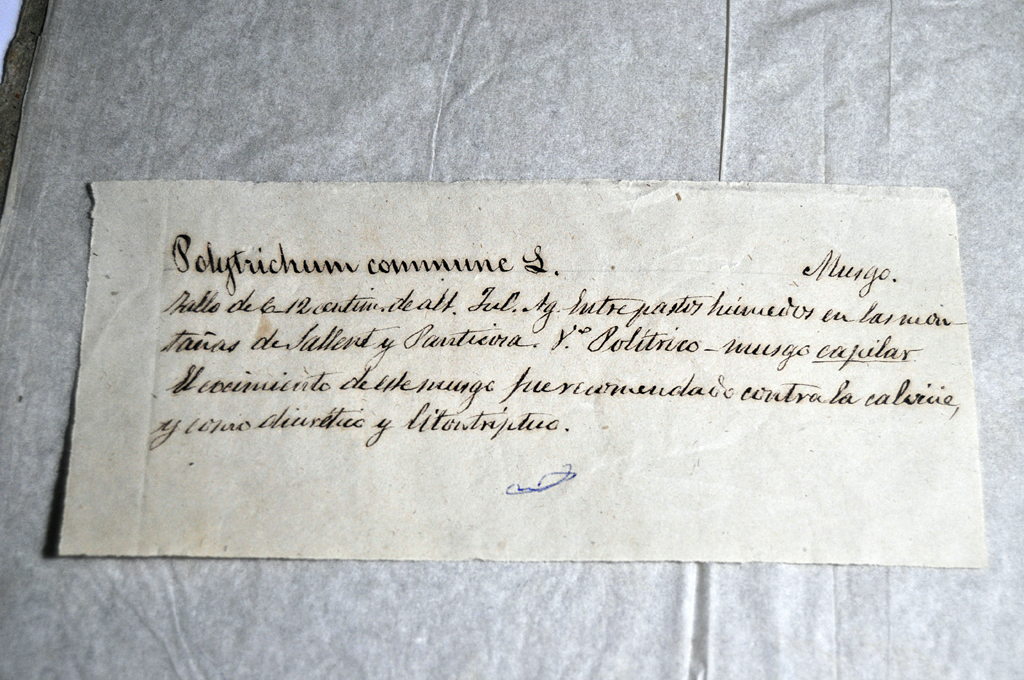 Polytrichum commune L. Musgo.
Tallo de 6 a 12 centim. de alt. Jul. Ag. Entre pastos húmedos en las mon-
tañas de Sallent y Panticosa. V.º Polítrico - musgo capilar
El cocimiento de este musgo fue recomendado contra la calvicie,
y como diurético y litontríptico.